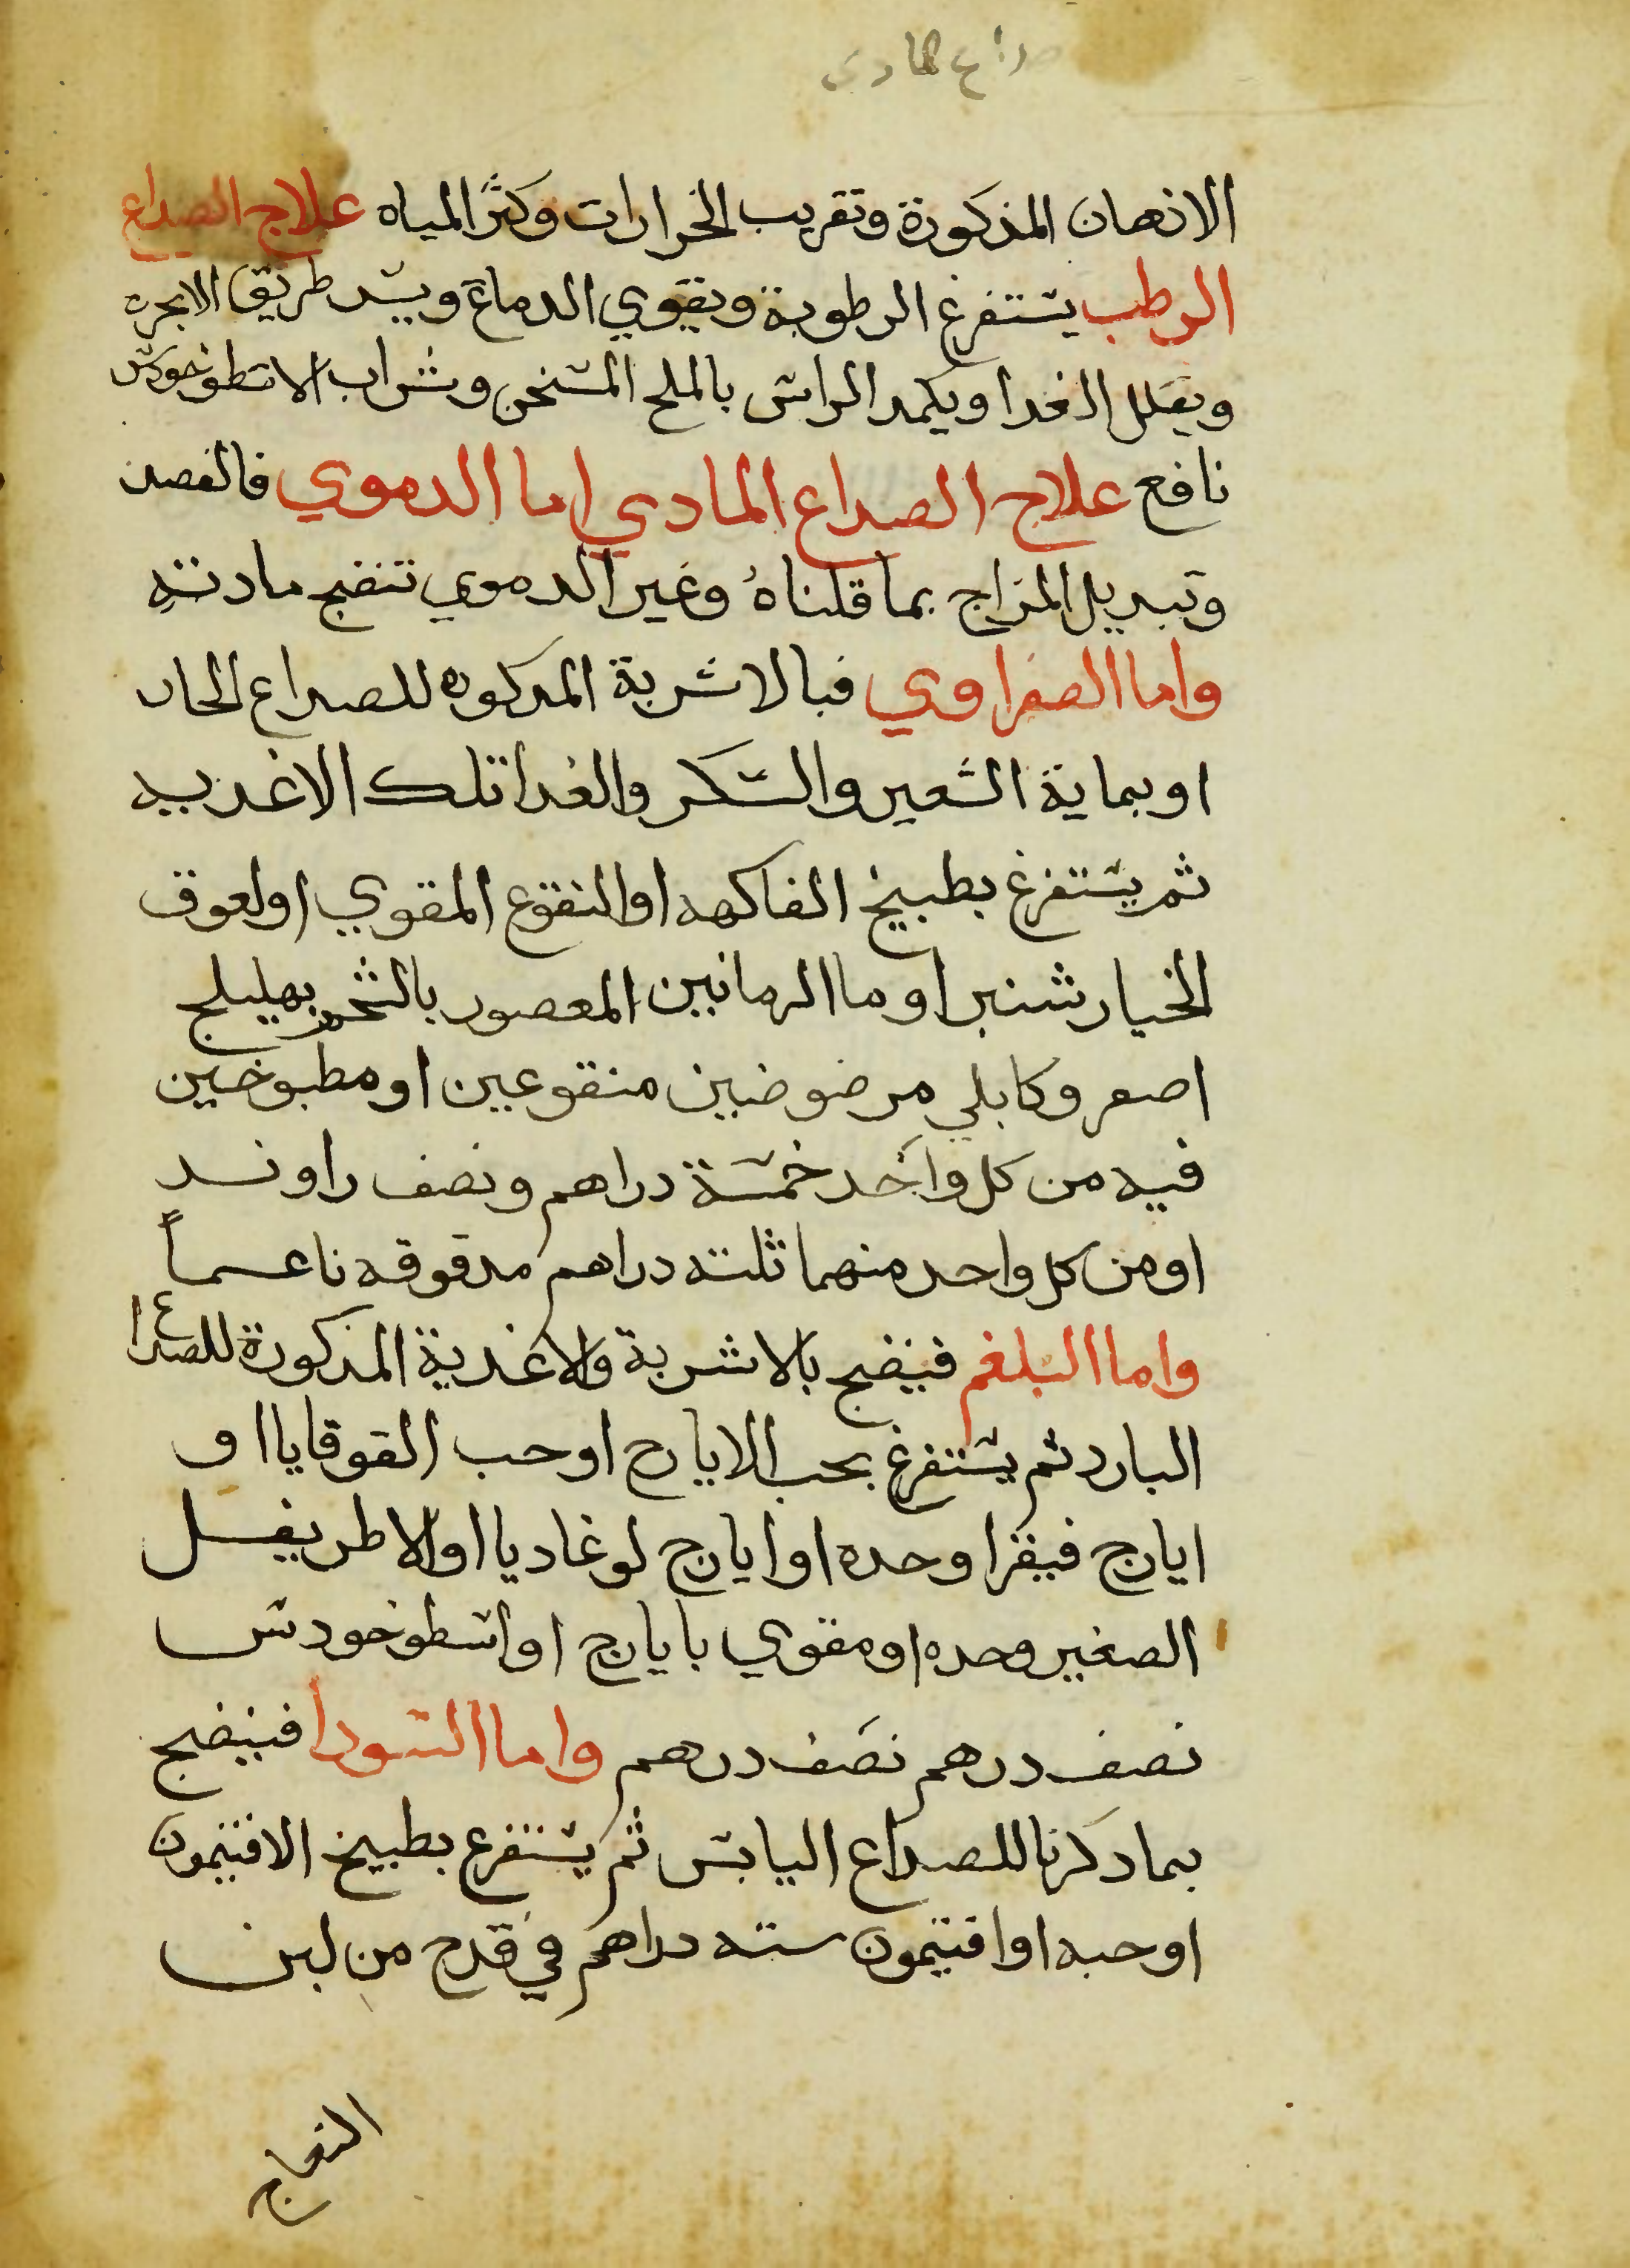 صداع المادي
الادهان المذكورة وتقريب الخرارات وكثر المياه علاج الصداع
الرطب يستفرغ الرطوبة ويقوي الدماغ ويسد طريق الابخره
ويقلل الغدا ويكمد الراس بالملح المسخن وشراب الاسطوخودس
نافع علاج الصداع المادي اما الدموي فالفصد
وتبديل المزاج بما قلناهُ وغير الدموي تنضج مادته
واما الصفراوي فبالاشربة المدكوره للصداع الحار
او بماية الشعير والسكر والغدا تلك الاغديه
ثم يستفرغ بطبيخ الفاكهه او النقوع المقوي او لعوق
الخيار شنبر او ما الرمانين المعصور بالشحم بهليلج
اصفر وكابلي مرضوضين منقوعين او مطبوخين
فيه من كل واحد خمسة دراهم ونصف راوند
او من كل واحد منهما ثلثه دراهم مدقوقه ناعماً
واما البلغم فينضج بالاشربة والاغدية المذكورة للصداع
البارد ثم يستفرغ بحب الايارج او حب القوقايا او
ايارج فيقرا وحده او ايارج لوغاديا او الاطريفل
الصغير وحده او مقوي بايارج او اسطوخودس
نصف درهم نصف درهم واما السودا فينضج
بما دكرنا للصداع اليابس ثم يستفرع بطبيخ الافتيمون
او حبه او افتيمون سته دراهم في قدح من لبن
النعاج